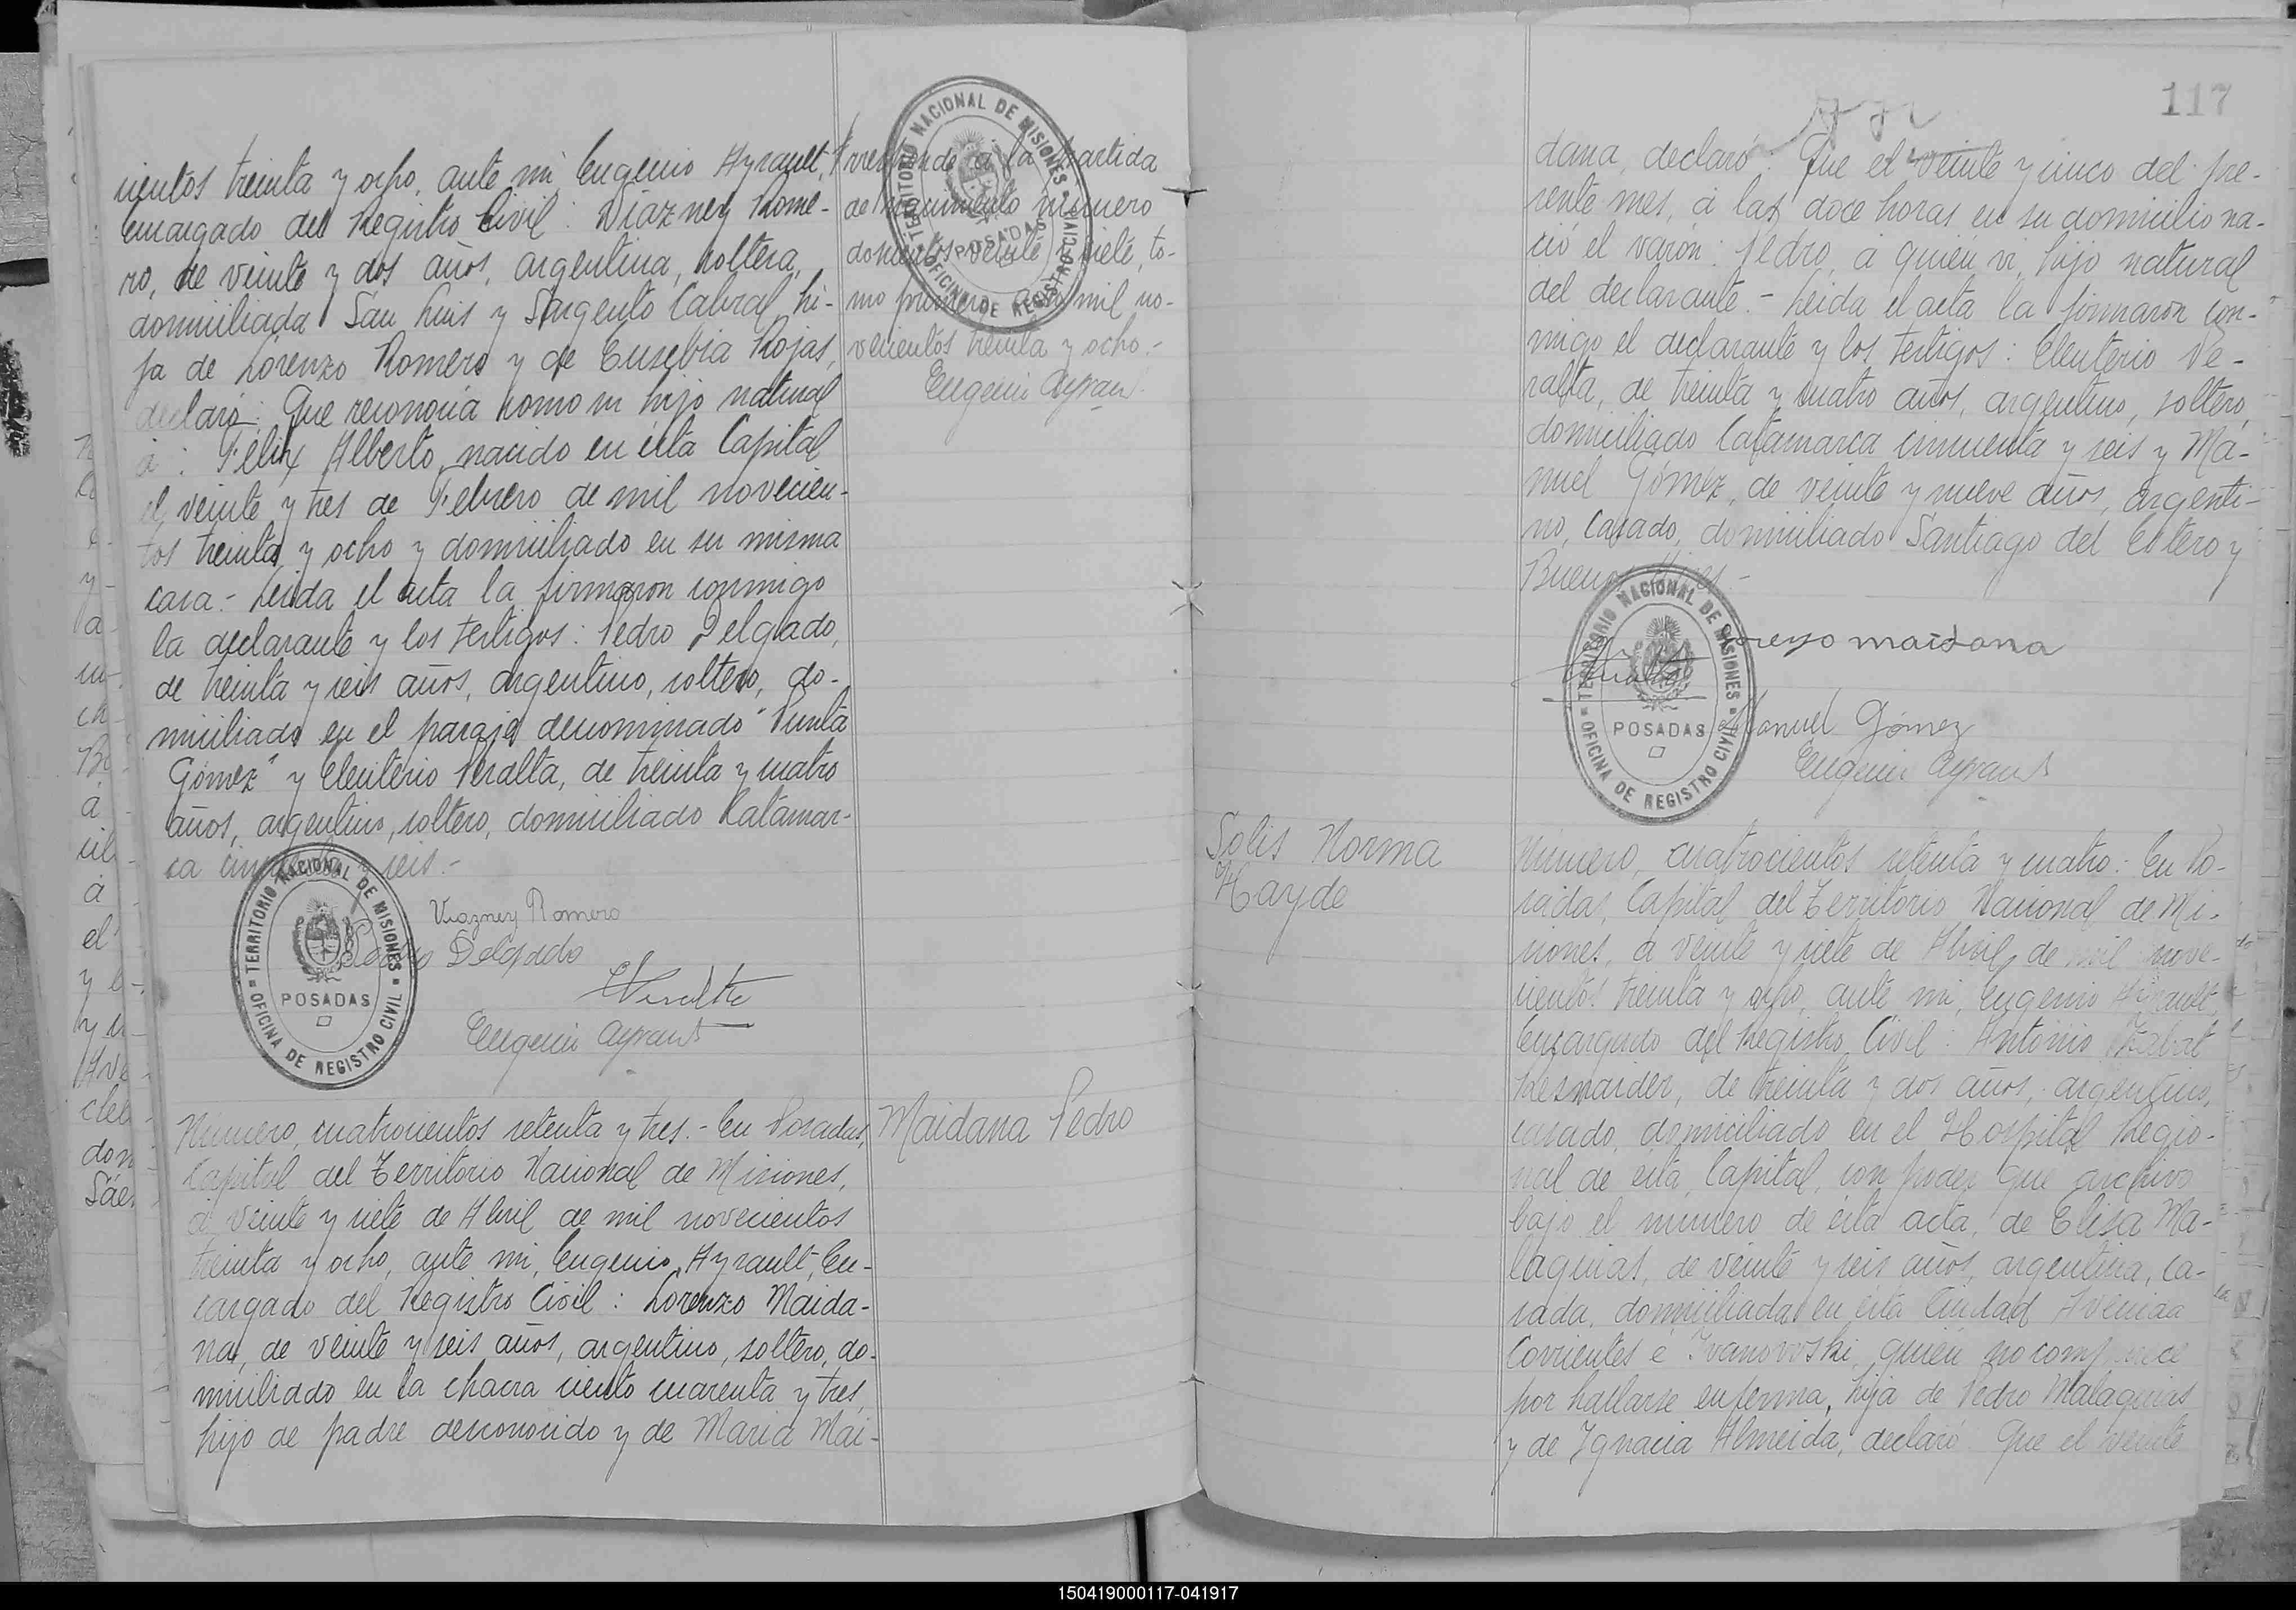 cientos treinta y ocho, ante mi, Eugenio Ayrault,
Encargado del Registro Civil: Viazney Rome-
ro, de veinte y dos años, argentina, soltera,
domiciliada San Luis y Sargento Cabral, hi-
ja de Lorenzo Romero y de Eusebia Rojas,
declaró: Que reconocía como su hijo natural
á: Félix Alberto, nacido en ésta Capital
el veinte y tres de Febrero de mil novecien-
tos treinta y ocho y domiciliado en su misma
casa.- Leida el acta la firmaron conmigo
la declarante y los testigos: Pedro Delgado,
de treinta y seis años, argentino, soltero, do-
miciliado en el paraje denominado "Punta
Gómez" y Eleuterio Peralta, de treinta y cuatro
años, argentino, soltero, domiciliado Catamar-
ca cincuenta y seis.-
TERRITORIO NACIONAL DE MISIONES
POSADAS
OFICINA DE REGISTRO CIVIL
Viazney Romero
Pedro Delgado
Eugenio Ayrault
rresponde a la partida
de nacimiento número
doscientos veinte y siete, to-
mo primero, año mil no-
vecientos treinta y ocho.-
Eugenio Ayrault
TERRITORIO NACIONAL DE MISIONES
POSADAS
OFICINA DE REGISTRO CIVIL
Maidana Pedro
Número, cuatrocientos setenta y tres.- En Posadas,
Capital del Territorio Nacional de Misiones,
á veinte y siete de Abril de mil novecientos
treinta y ocho, ante mi, Eugenio Ayrault, En-
cargado del Registro Civil: Lorenzo Maida-
na, de veinte y seis años, argentino, soltero, do-
miciliado en la chacra ciento cuarenta y tres,
hijo de padre desconocido y de Maria Mai-
117
dana, declaró: Que el veinte y cinco del pre-
sente mes, á las doce horas en su domicilio na-
ció el varón: Pedro, á quién vi, hijo natural
del declarante.- Leida el acta la firmaron con-
migo el declarante y los testigos: Eleuterio Pe-
ralta, de treinta y cuatro años, argentino, soltero,
domiciliado Catamarca cincuenta y seis y Ma-
nuel Gómez, de veinte y nueve años, argenti-
no, casado, domiciliado Santiago del Estero y
Buenos Aires.-
TERRITORIO NACIONAL DE MISIONES
POSADAS
OFICINA DE REGISTRO CIVIL
Lorenzo maidana
Manuel Gómez
Eugenio Ayrault
Solis Norma
Hayde
Número, cuatrocientos setenta y cuatro: En Po-
sadas, Capital del Territorio Nacional de Mi-
siones, á veinte y siete de Abril, de mil nove-
cientos treinta y ocho, ante mi, Eugenio Ayrault,
Encargado del Registro Civil: Antonio
de treinta y dos años, argentino,
casado, domiciliado en el Hospital Regio-
nal de esta Capital, con poder que archivo
bajo el número de ésta acta, de Elisa Ma-
laquias, de veinte y seis años, argentina, ca-
sada, domiciliada en ésta Ciudad Avenida
Corrientes é Ivanovoski, quien no comparece
por hallarse enferma, hija de Pedro Malaquias
y de Ignacia Almeida, declaró Que el veinte
150419000117-041917